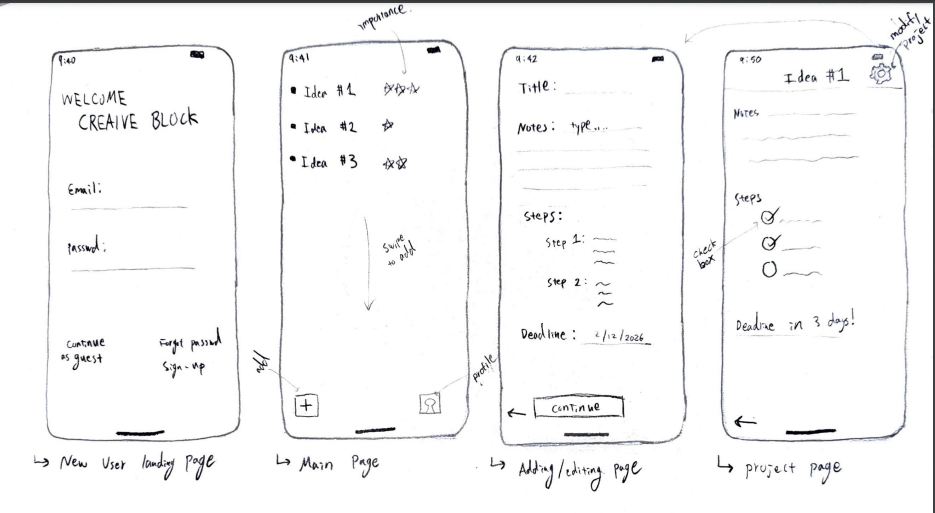 9:40
WELCOME
CREAIVE BLOCK
Email:
Passwd:
Continue
as guest
Forgot passwd
Sign-up
↳ New User landing page
importance.
9:41
• Idea #1
• Idea #2
• Idea #3
Swipe
to add
add
+
profile
↳ Main Page
9:42
Title:
Notes: type....
Steps:
Step 1:
Step 2:
Deadline: 2/12/2026
←
Continue
↳ Adding/editing page
modify
project
9:50
Idea #1
Notes
Steps
check
box
Deadline in 3 days!
←
↳ project page